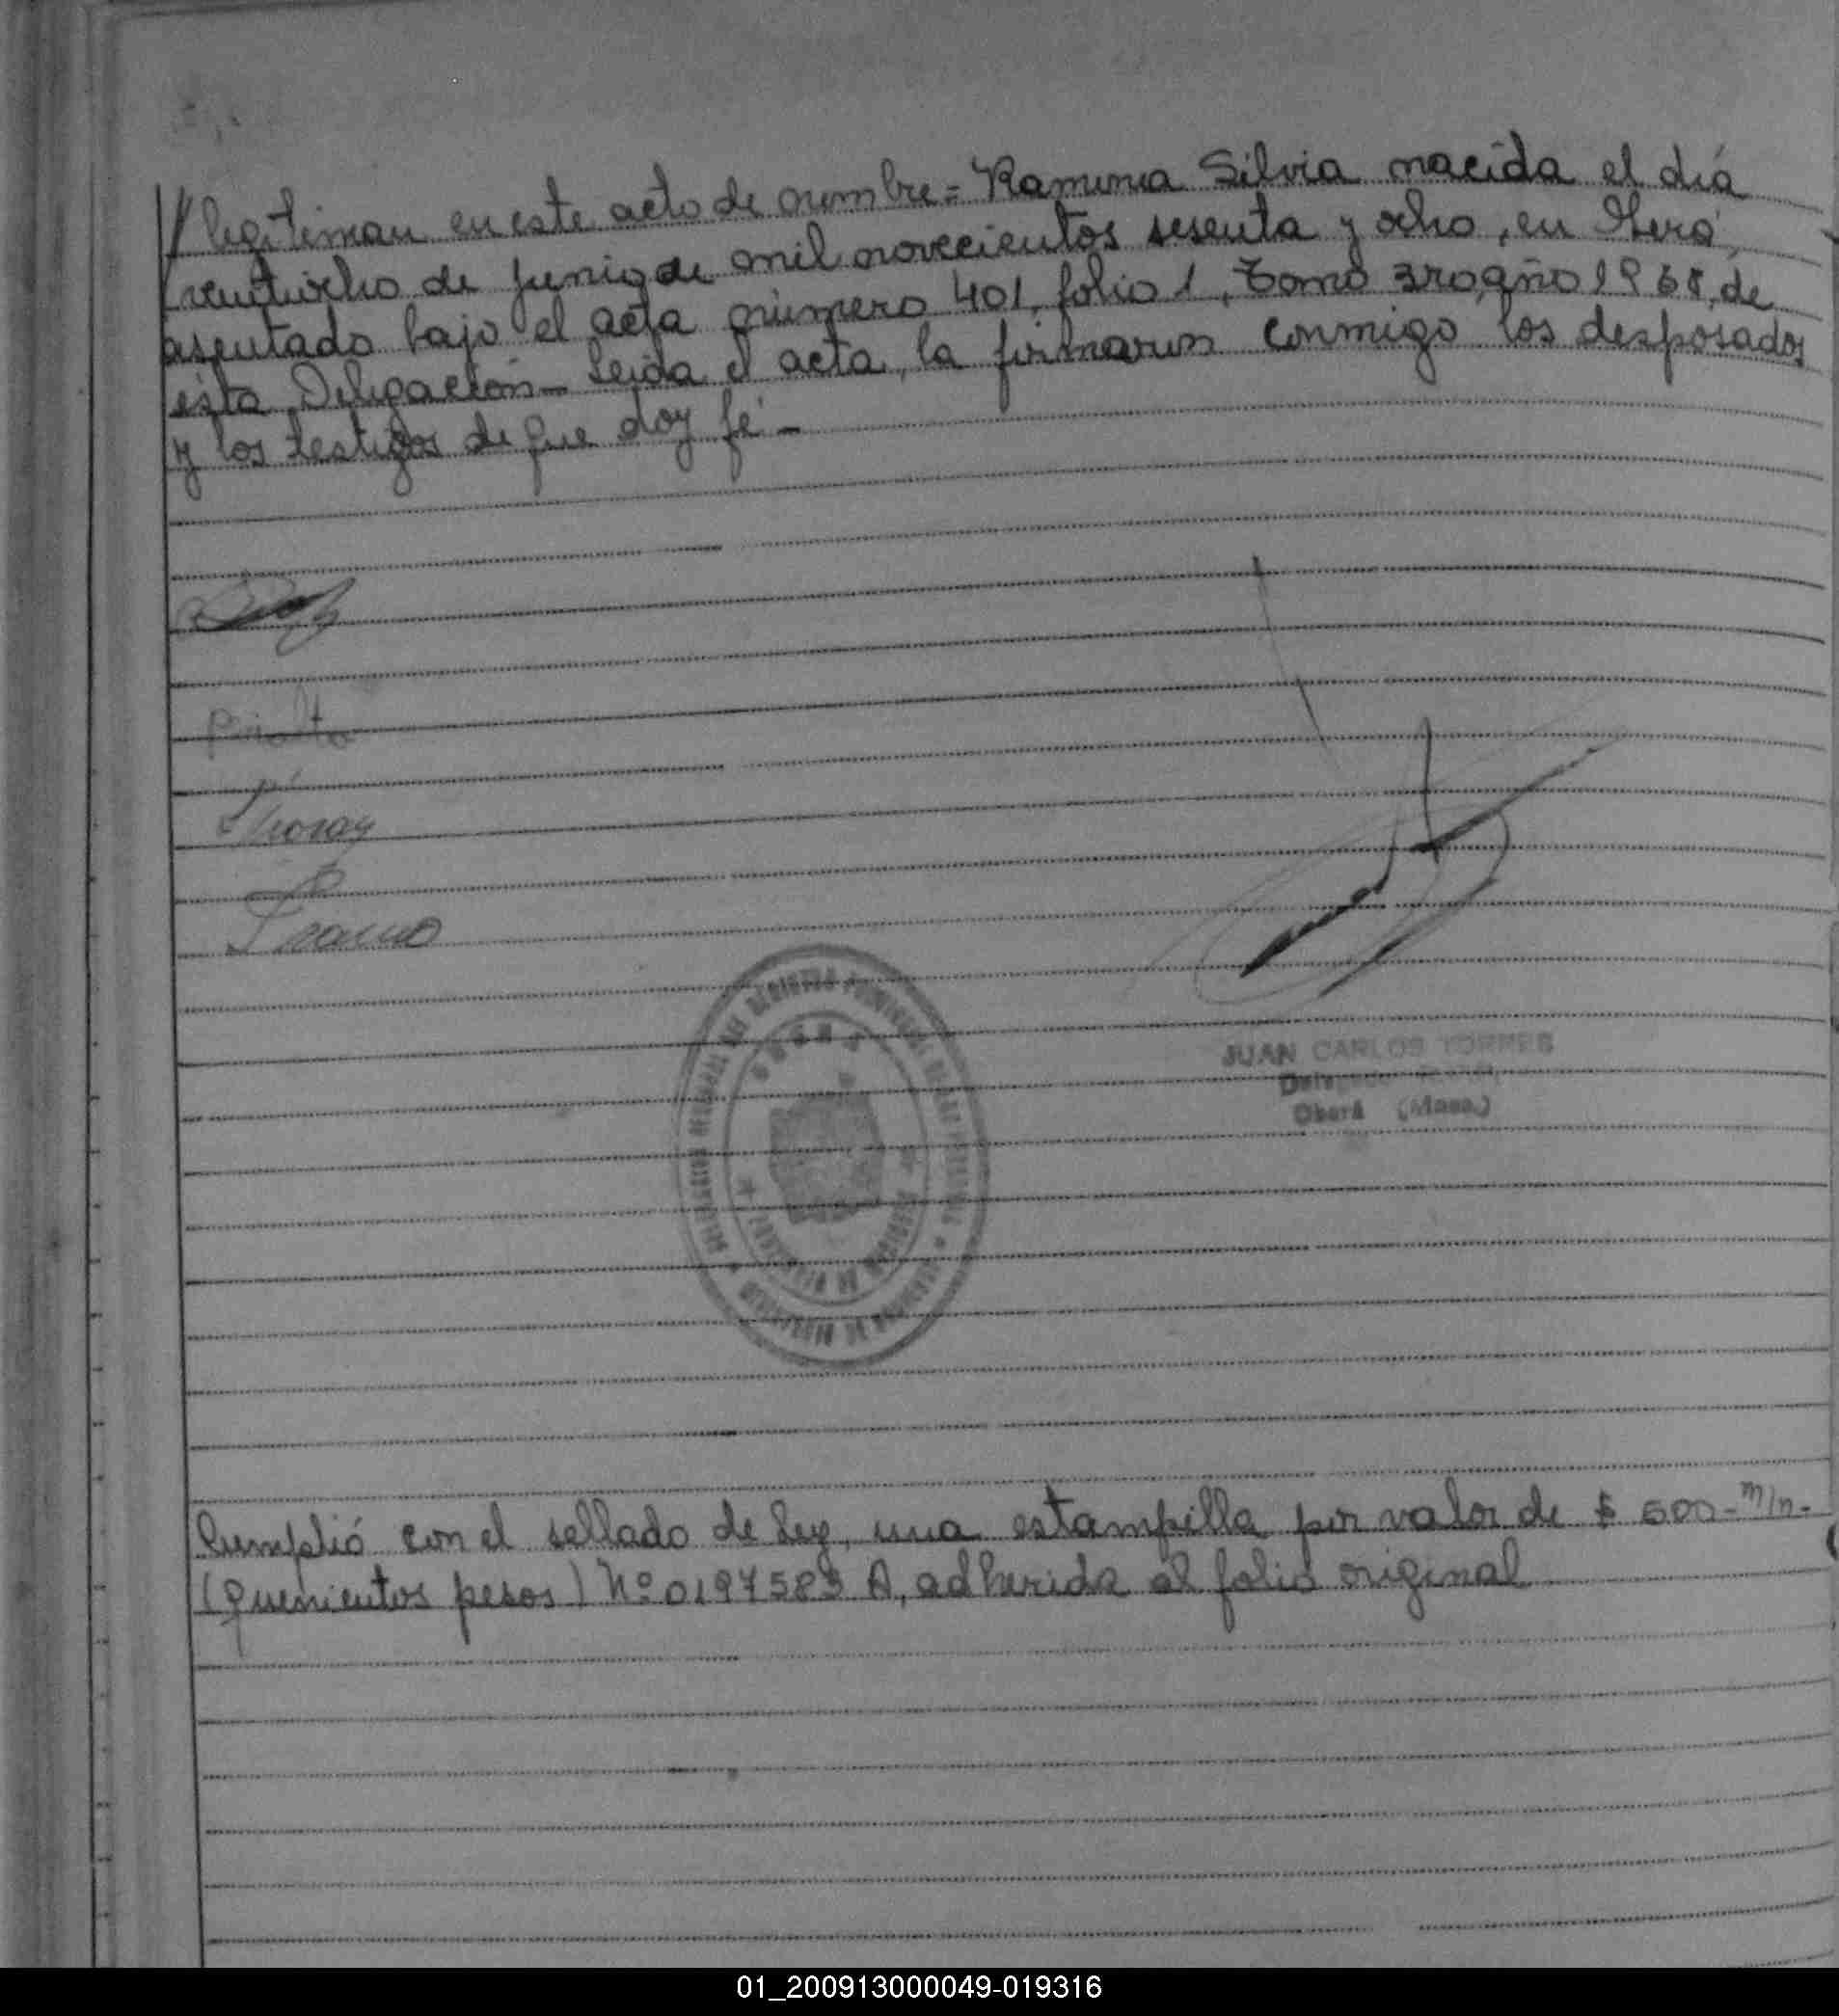 // legitiman en este acto de nombre = Ramona Silvia nacida el día
veintiocho de junio de mil novecientos sesenta y ocho, en Oberá,
asentado bajo el acta número 401, folio 1, Tomo 3ro, año 1968, de
ésta Delegación - Leida el acta, la firmaron conmigo los desposados
y los testigos de que doy fé -
Peralta
JUAN CARLOS TORRES
Oberá (Mnes.)
Cumplió con el sellado de Ley, una estampilla por valor de $ 500 - m/n -
(quinientos pesos) Nº 0197583 A, adherida al folio original
01_200913000049-019316